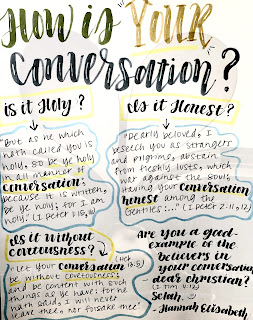 How is YOUR
Conversation?
is it Holy?
"But as he which
hath called you is
holy, so be ye holy
in all manner of
conversation;
because it is written,
be ye holy; for I am
holy." (I Peter 1:15,16)
Is it Honest?
"Dearly beloved, I
beseech you as strangers
and pilgrims, abstain
from fleshly lusts, which
war against the soul;
having your conversation
honest among the
Gentiles:..." (I Peter 2:11,12)
Is it without
covetousness?
"Let your conversation
be without covetousness;
and be content with such
things as ye have: for he
hath said, I will never
leave thee, nor forsake thee"
(Heb 13:5)
Are you a good
example of the
believers in
your conversation,
dear christian?
(I Tim 4:12)
Selah,
- Hannah Elisabeth